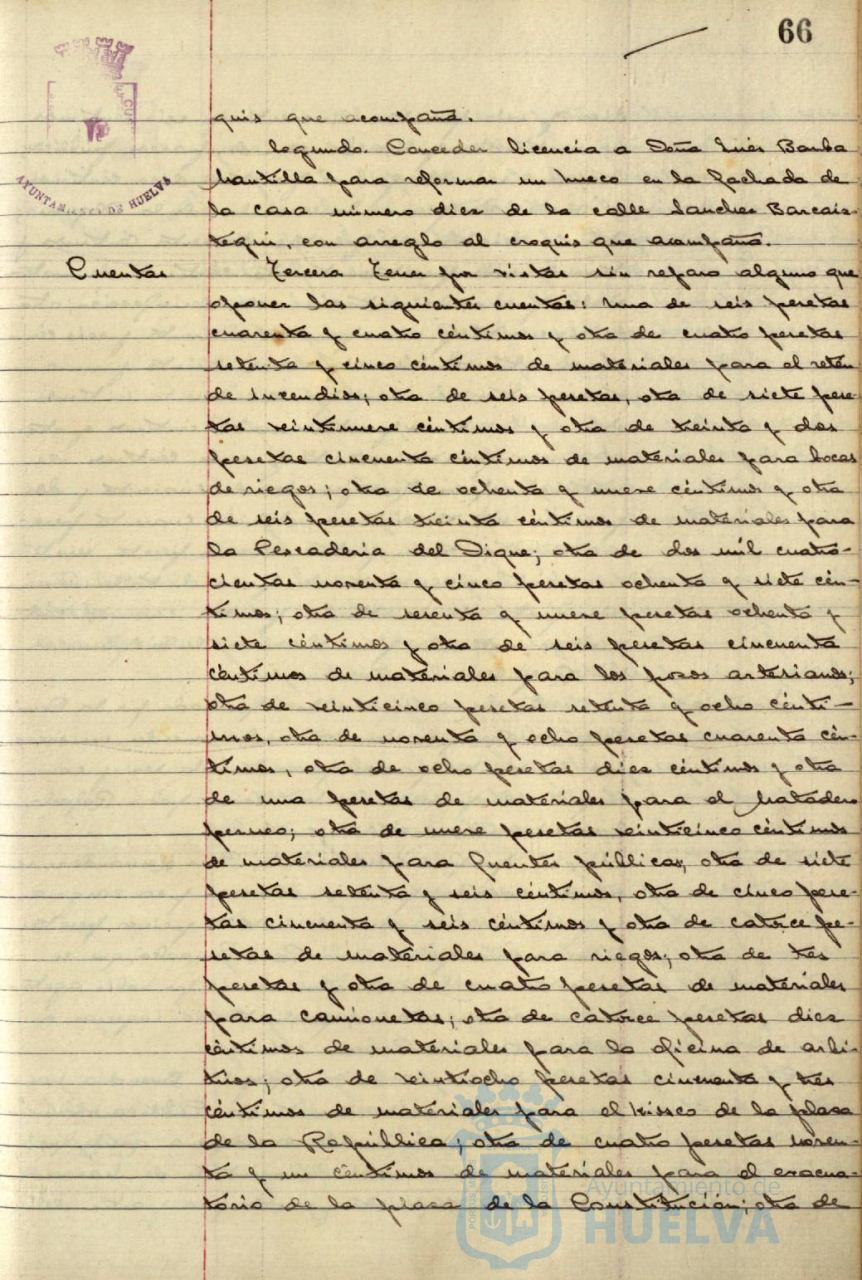 66
AYUNTAMIENTO DE HUELVA
quis que acompaña.
Segundo. Conceder licencia a Doña Inés Barba
Mantilla para reformar un hueco en la fachada de
la casa número diez de la calle Sanchez Barcaiz-
tegui, con arreglo al croquis que acompaña.
Cuentas
Tercera Tener por vistas sin reparo alguno que
oponer las siguientes cuentas: una de seis pesetas
cuarenta y cuatro céntimos y otra de cuatro pesetas
setenta y cinco céntimos de materiales para el retén
de Incendios; otra de seis pesetas, otra de siete pese-
tas veintinueve céntimos y otra de treinta y dos
pesetas cincuenta céntimos de materiales para bocas
de riegos; otra de ochenta y nueve céntimos y otra
de seis pesetas treinta céntimos de materiales para
la Pescaderia del Dique; otra de dos mil cuatro-
cientas noventa y cinco pesetas ochenta y siete cén-
timos; otra de sesenta y nueve pesetas ochenta y
siete céntimos y otra de seis pesetas cincuenta
céntimos de materiales para los pozos artesianos;
otra de veinticinco pesetas setenta y ocho cénti-
mos, otra de noventa y ocho pesetas cuarenta cén-
timos, otra de ocho pesetas diez céntimos y otra
de una pesetas de materiales para el Matadero
perneo; otra de nueve pesetas veinticinco céntimos
de materiales para fuentes públicas, otra de siete
pesetas setenta y seis céntimos, otra de cinco pese-
tas cincuenta y seis céntimos y otra de catorce pe-
setas de materiales para riegos; otra de tres
pesetas y otra de cuatro pesetas de materiales
para camionetas; otra de catorce pesetas diez
céntimos de materiales para la oficina de arbi-
trios; otra de veintiocho pesetas cincuenta y tres
céntimos de materiales para el kiosco de la plaza
de la República; otra de cuatro pesetas noven-
ta y un céntimos de materiales para el evacua-
torio de la plaza de la Constitución; otra de
Ayuntamiento de
HUELVA